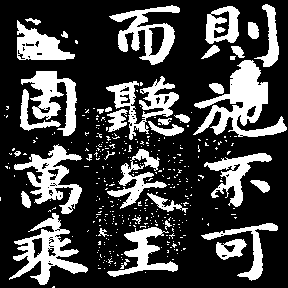 則施不可
而聽矣王
固萬乘